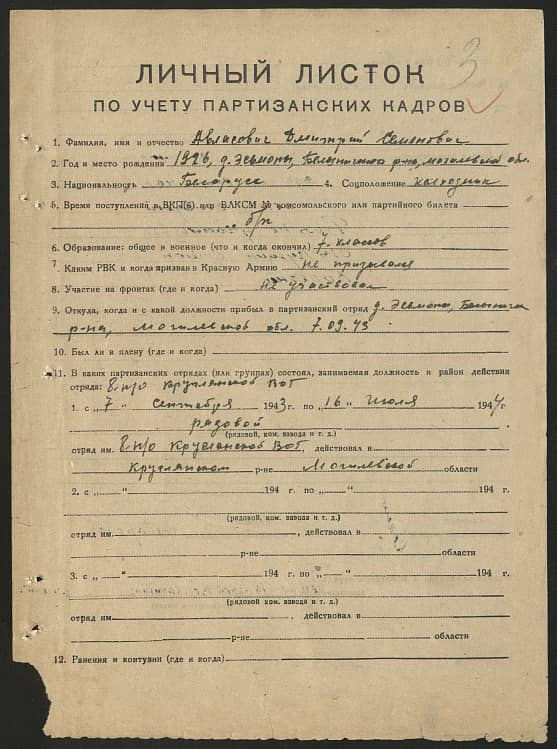 3
ЛИЧНЫЙ ЛИСТОК
ПО УЧЕТУ ПАРТИЗАНСКИХ КАДРОВ
1. Фамилия, имя и отчество Авласович Дмитрий Семенович
2. Год и место рождения 1926, д. Эсьмоны, Белыничского р-на, Могилевской обл.
3. Национальность Беларусс 4. Соцположение колхозник
5. Время поступления в ВКП(б) или ВЛКСМ № комсомольского или партийного билета
б/п
6. Образование: общее и военное (что и когда окончил) 7. классов
7. Каким РВК и когда призван в Красную Армию не призывался
8. Участие на фронтах (где и когда) не участвовал
9. Откуда, когда и с какой должности прибыл в партизанский отряд д. Эсьмоны, Белынич
р-на, Могилевской обл. 7.09.43
10. Был ли в плену (где и когда)
11. В каких партизанских отрядах (или группах) состоял, занимаемая должность и район действия
отряда: 8 п/о Круглянской ВОГ
1. с „7“ сентября 1943 г. по „16“ июля 1944 г.
рядовой
(рядовой, ком. взвода и т. д.)
отряд им. 8 п/о Круглянской ВОГ, действовал в
Круглянском р-не Могилевской области
2. с „ “ 194 г. по „ “ 194 г.
(рядовой, ком. взвода и т. д.)
отряд им. , действовал в
р-не области
3. с „ “ 194 г. по „ “ 194 г.
(рядовой, ком. взвода и т. д.)
отряд им. , действовал в
р-не области
12. Ранения и контузии (где и когда)